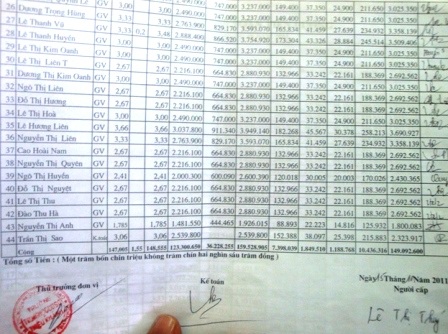 26 Dương Trọng Hùng GV 3,00 3,00 2.490.000 747.000 3.237.000 149.400 37.350 24.900 211.650 3.025.350
27 Lê Thanh Và GV 3,33 3,33 2.763.900 829.170 3.593.070 165.834 41.459 27.639 234.932 3.358.139
28 Lê Thanh Huyền GV 3,33 0,2 3,48
29 Lê Thị Kim Oanh GV 3,00 3,00 2.490.000 747.000 3.237.000 149.400 37.350 24.900 211.650 3.025.350
30 Lê Thị Liên T GV 2,67 2,67 2.216.100 664.830 2.880.930 132.966 33.242 22.161 188.369 2.692.562
31 Dương Thị Kim Oanh GV 3,00 3,00 2.490.000 747.000 3.237.000 149.400 37.350 24.900 211.650 3.025.350
32 Ngô Thị Liên GV 2,67 2,67 2.216.100 664.830 2.880.930 132.966 33.242 22.161 188.369 2.692.562
33 Đỗ Thị Hương GV 2,67 2,67 2.216.100 664.830 2.880.930 132.966 33.242 22.161 188.369 2.692.562
34 Lê Thị Hoà GV 3,00 3,00 2.490.000 747.000 3.237.000 149.400 37.350 24.900 211.650 3.025.350
35 Lê Hương Liên GV 3,66 3,66 3.037.800 911.340 3.949.140 182.268 45.567 30.378 258.213 3.690.927
36 Nguyễn Thị Liên GV 3,33 3,33 2.763.900 829.170 3.593.070 165.834 41.459 27.639 234.932 3.358.139
37 Cao Hoài Nam GV 2,67 2,67 2.216.100 664.830 2.880.930 132.966 33.242 22.161 188.369 2.692.562
38 Nguyễn Thị Quyên GV 2,67 2,67 2.216.100 664.830 2.880.930 132.966 33.242 22.161 188.369 2.692.562
39 Ngô Thị Huyền GV 2,41 2,41 2.000.300 600.090 2.600.390 120.018 30.005 20.003 170.026 2.430.365
40 Đỗ Thị Nguyệt GV 2,67 2,67 2.216.100 664.830 2.880.930 132.966 33.242 22.161 188.369 2.692.562
41 Lê Thị Thu GV 2,67 2,67 2.216.100 664.830 2.880.930 132.966 33.242 22.161 188.369 2.692.562
42 Đào Thu Hà GV 2,67 2,67 2.216.100 664.830 2.880.930 132.966 33.242 22.161 188.369 2.692.562
43 Nguyễn Thị Anh GV 1,785 1,785 1.481.550 444.465 1.926.015 88.893 22.223 14.816 125.931 1.800.083
44 Trần Thị Sao 3,06 3,06 2.539.800 2.539.800 152.388 38.097 25.398 215.883 2.323.917
Cộng 147,005 1,55 148,555 123.300.650 36.228.255 159.528.905 7.398.039 1.849.510 10.436.316 149.092.600
Tổng số Tiền : ( Một trăm bốn chín triệu không trăm chín hai nghìn sáu trăm đồng )
Ngày 15 Tháng Năm 2011
Thủ trưởng đơn vị Kế toán Người cấp
Lê Thị